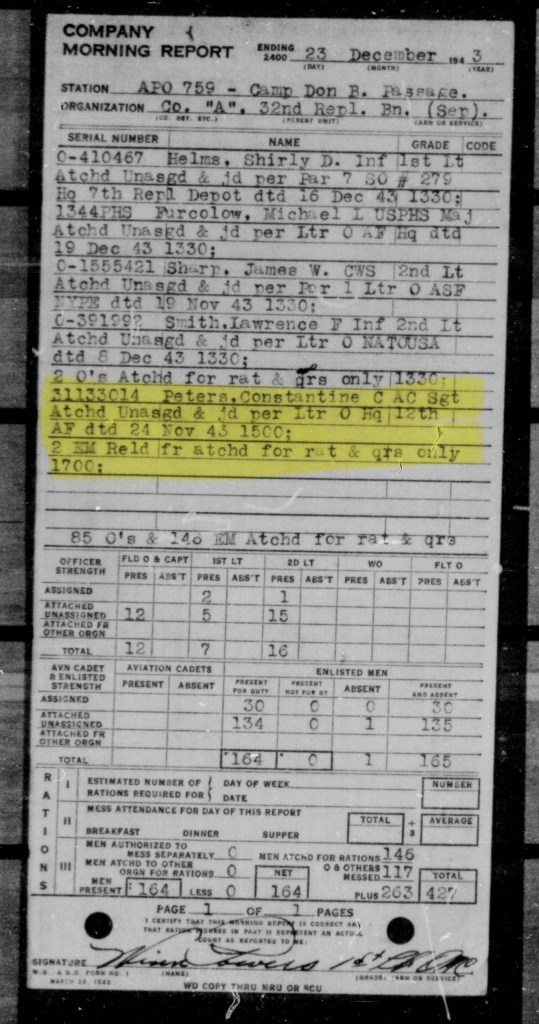 COMPANY
MORNING REPORT
ENDING 2400 23 December 1943
(DAY) (MONTH) (YEAR)
STATION APO 759 - Camp Don B. Passage.
ORGANIZATION Co. "A", 32nd Repl. Bn. (Sep).
(CO. DET. ETC.) (PARENT UNIT) (ARM OR SERVICE)
SERIAL NUMBER NAME GRADE CODE
O-410467 Helms, Shirly D. Inf 1st Lt
Atchd Unasgd & jd per Par 7 SO # 279
Hq 7th Repl Depot dtd 16 Dec 43 1330;
1344PHS Furcolow, Michael L USPHS Maj
Atchd Unasgd & jd per Ltr O AF Hq dtd
19 Dec 43 1330;
O-1555421 Sharp, James W. CWS 2nd Lt
Atchd Unasgd & jd per Par 1 Ltr O ASF
NYPE dtd 19 Nov 43 1330;
O-391992 Smith,Lawrence F Inf 2nd Lt
Atchd Unasgd & jd per Ltr O NATOUSA
dtd 8 Dec 43 1330;
2 O's Atchd for rat & qrs only 1330;
31133014 Peters,Constantine C AC Sgt
Atchd Unasgd & jd per Ltr O Hq 12th
AF dtd 24 Nov 43 1500;
2 EM Reld fr atchd for rat & qrs only
1700;
85 O's & 146 EM Atchd for rat & qrs
OFFICER STRENGTH FLD O & CAPT 1ST LT 2D LT WO FLT O
PRES ABS'T PRES ABS'T PRES ABS'T PRES ABS'T PRES ABS'T
ASSIGNED 2 1
ATTACHED UNASSIGNED 12 5 15
ATTACHED FR OTHER ORGN
TOTAL 12 7 16
AVN CADET & ENLISTED STRENGTH AVIATION CADETS ENLISTED MEN
PRESENT ABSENT PRESENT FOR DUTY PRESENT NOT FOR DY ABSENT PRESENT AND ABSENT
ASSIGNED 30 0 0 30
ATTACHED UNASSIGNED 134 0 1 135
ATTACHED FR OTHER ORGN
TOTAL 164 0 1 165
RATIONS
I ESTIMATED NUMBER OF RATIONS REQUIRED FOR { DAY OF WEEK DATE NUMBER
II MESS ATTENDANCE FOR DAY OF THIS REPORT
BREAKFAST DINNER SUPPER TOTAL ÷ 3 AVERAGE
III MEN AUTHORIZED TO MESS SEPARATELY 0 MEN ATCHD FOR RATIONS 146
MEN ATCHD TO OTHER ORGN FOR RATIONS 0 NET O & OTHERS MESSED 117 TOTAL
MEN PRESENT 164 LESS 0 164 PLUS 263 427
PAGE 1 OF 1 PAGES
I CERTIFY THAT THIS MORNING REPORT IS CORRECT AND
THAT RATION FIGURES IN PART III REPRESENT AN ACTUAL
COUNT AS REPORTED TO ME.
SIGNATURE
W.D. A.G.O. FORM NO. 1 (NAME) (GRADE, ARM OR SERVICE)
MARCH 23, 1943
WD COPY THRU MRU OR SCU